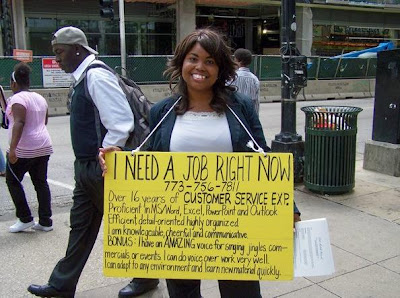 I NEED A JOB RIGHT NOW
773-756-7811
Over 16 years of CUSTOMER SERVICE EXP.
Proficient in MS/Word, Excel, PowerPoint and Outlook
Efficient, detail-oriented, highly organized.
I am knowledgeable, cheerful and communicative.
BONUS: I have an AMAZING voice for singing jingles com-
mercials or events! I can do voice over work very well.
I can adapt to any environment and learn new material quickly.